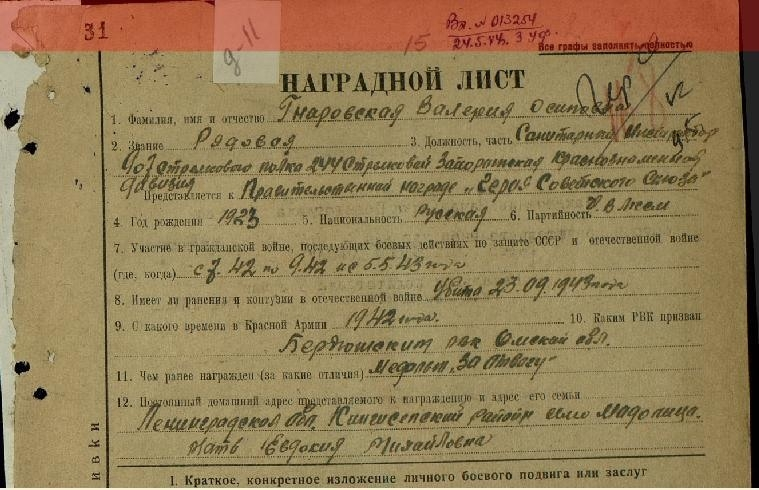 31
д-11
15
Вх. N 013254
24.5.44.
Все графы заполнять полностью
НАГРАДНОЙ ЛИСТ
1. Фамилия, имя и отчество Гнаровская Валерия Осиповна
2. Звание Рядовая 3. Должность, часть Санитарный Инструктор
907 Стрелкового полка 244 Стрелковой Запорожская Краснознаменная
дивизия
Представляется к Правительственной награде „Героя Советского Союза"
4. Год рождения 1923 5. Национальность Русская 6. Партийность
7. Участие в гражданской войне, последующих боевых действиях по защите СССР и отечественной войне
(где, когда) с 7.42 по 9.42 и с 5.5.43 года
8. Имеет ли ранения и контузии в отечественной войне Убита 23.09.1943 года
9. С какого времени в Красной Армии 1942 года. 10. Каким РВК призван
Бердюжским рвк Омской обл.
11. Чем ранее награжден (за какие отличия) Медалью „За Отвагу"
12. Постоянный домашний адрес представляемого к награждению и адрес его семьи
Ленинградская обл. Кингисепский район
Мать Евдокия Михайловна
I. Краткое, конкретное изложение личного боевого подвига или заслуг
ивки